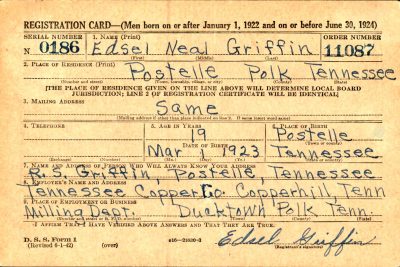 REGISTRATION CARD—(Men born on or after January 1, 1922 and on or before June 30, 1924)
SERIAL NUMBER 1. NAME (Print) ORDER NUMBER
N 0186 Edsel Neal Griffin 11087
(First) (Middle) (Last)
2. PLACE OF RESIDENCE (Print)
Postelle Polk Tennessee
(Number and street) (Town, township, village, or city) (County) (State)
[THE PLACE OF RESIDENCE GIVEN ON THE LINE ABOVE WILL DETERMINE LOCAL BOARD
JURISDICTION; LINE 2 OF REGISTRATION CERTIFICATE WILL BE IDENTICAL]
3. MAILING ADDRESS
Same
(Mailing address if other than place indicated on line 2. If same insert word same)
4. TELEPHONE 5. AGE IN YEARS 6. PLACE OF BIRTH
19 Postelle
DATE OF BIRTH (Town or county)
Mar 1 1923 Tennessee
(Exchange) (Number) (Mo.) (Day) (Yr.) (State or country)
7. NAME AND ADDRESS OF PERSON WHO WILL ALWAYS KNOW YOUR ADDRESS
R. S. Griffin, Postelle, Tennessee
8. EMPLOYER'S NAME AND ADDRESS
Tennessee Copper Co. Copperhill, Tenn
9. PLACE OF EMPLOYMENT OR BUSINESS
Milling Dept. Ducktown Polk Tenn.
(Number and street or R. F. D. number) (Town) (County) (State)
I AFFIRM THAT I HAVE VERIFIED ABOVE ANSWERS AND THAT THEY ARE TRUE.
D. S. S. Form 1
(Revised 6-1-42) (over) Edsel Griffin
(Registrant's signature)